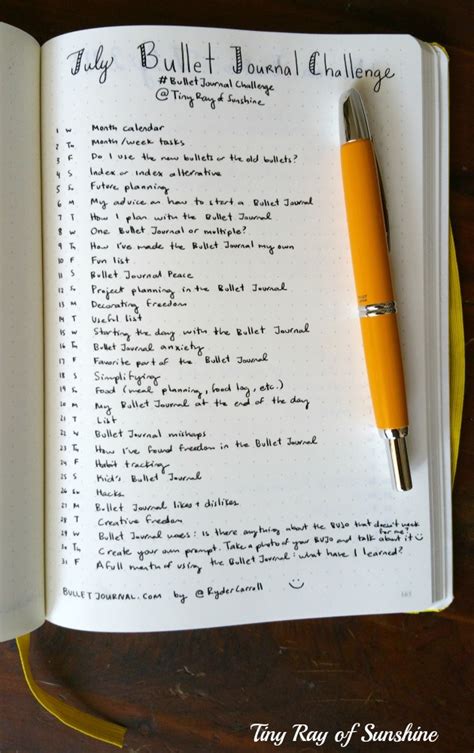 July Bullet Journal Challenge
#BulletJournalChallenge
@TinyRayofSunshine
1 W Month calendar
2 Th Month/week tasks
3 F Do I use the new bullets or the old bullets?
4 S Index or index alternative
5 S Future planning
6 M My advice on how to start a Bullet Journal
7 T How I plan with the Bullet Journal
8 W One Bullet Journal or multiple?
9 Th How I've made the Bullet Journal my own
10 F Fun list
11 S Bullet Journal Peace
12 S Project planning in the Bullet Journal
13 M Decorating freedom
14 T Useful list
15 W Starting the day with the Bullet Journal
16 Th Bullet Journal anxiety
17 F Favorite part of the Bullet Journal
18 S Simplifying
19 Su Food (meal planning, food log, etc.)
20 M My Bullet Journal at the end of the day
21 T List
22 W Bullet Journal mishaps
23 Th How I've found freedom in the Bullet Journal
24 F Habit tracking
25 S Kid's Bullet Journal
26 Su Hacks
27 M Bullet Journal likes + dislikes
28 T Creative freedom
29 W Bullet Journal woes: Is there anything about the BUJO that doesn't work for me?
30 Th Create your own prompt. Take a photo of your BUJO and talk about it
31 F A full month of using the Bullet Journal: what have I learned?
BULLETJOURNAL.COM by @RyderCarroll
Tiny Ray of Sunshine